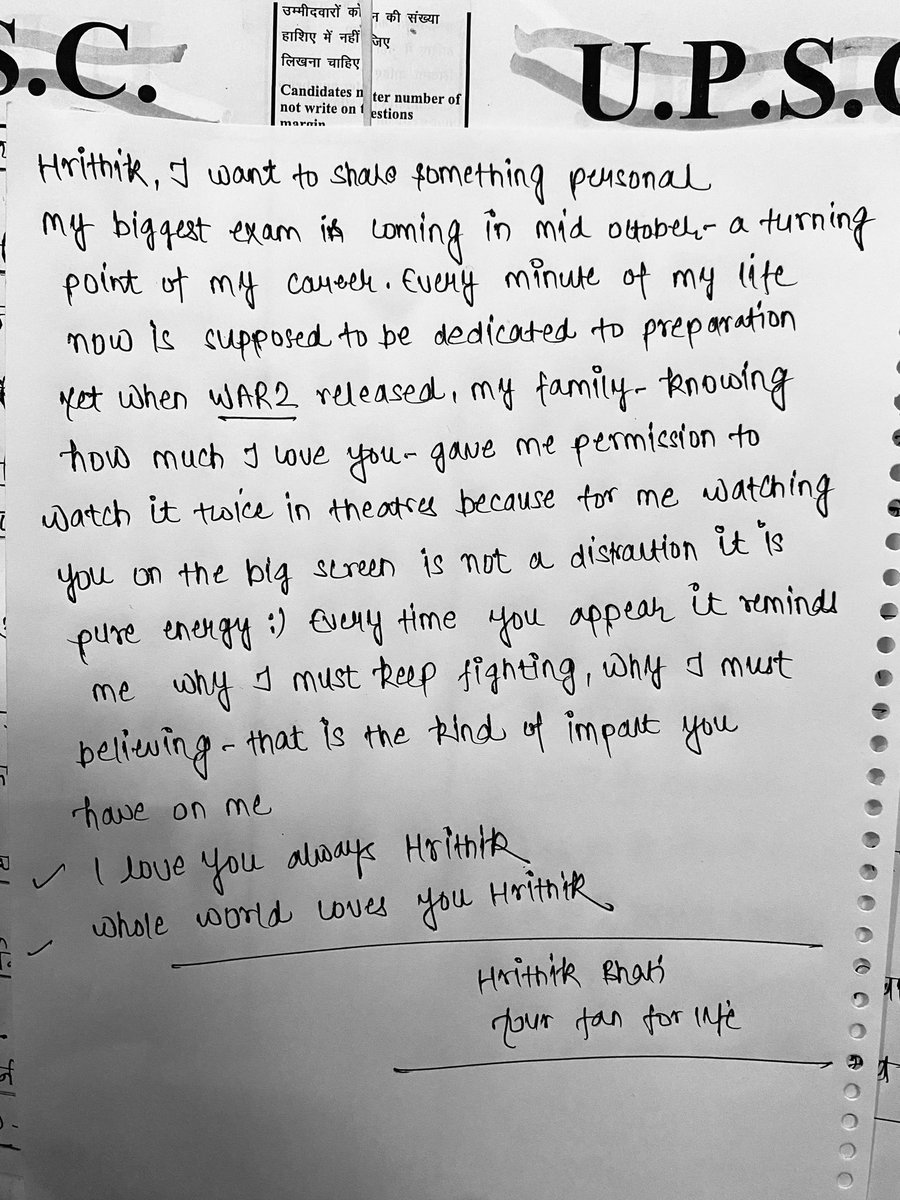 S.C.
उम्मीदवारों को
हाशिए में नहीं
लिखना चाहिए
Candidates n
not write on t
margin
न की संख्या
जिए
ter number of
estions
U.P.S.C
Hrithik, I want to share something personal
my biggest exam is coming in mid october - a turning
point of my career. Every minute of my life
now is supposed to be dedicated to preparation
yet when WAR2 released, my family - knowing
how much I love you - gave me permission to
watch it twice in theatres because for me watching
you on the big screen is not a distraction it is
pure energy :) Every time you appear it reminds
me why I must keep fighting, why I must
believing - that is the kind of impact you
have on me
✓ I love you always Hrithik
✓ whole world loves you Hrithik
Hrithik Bhati
your fan for life